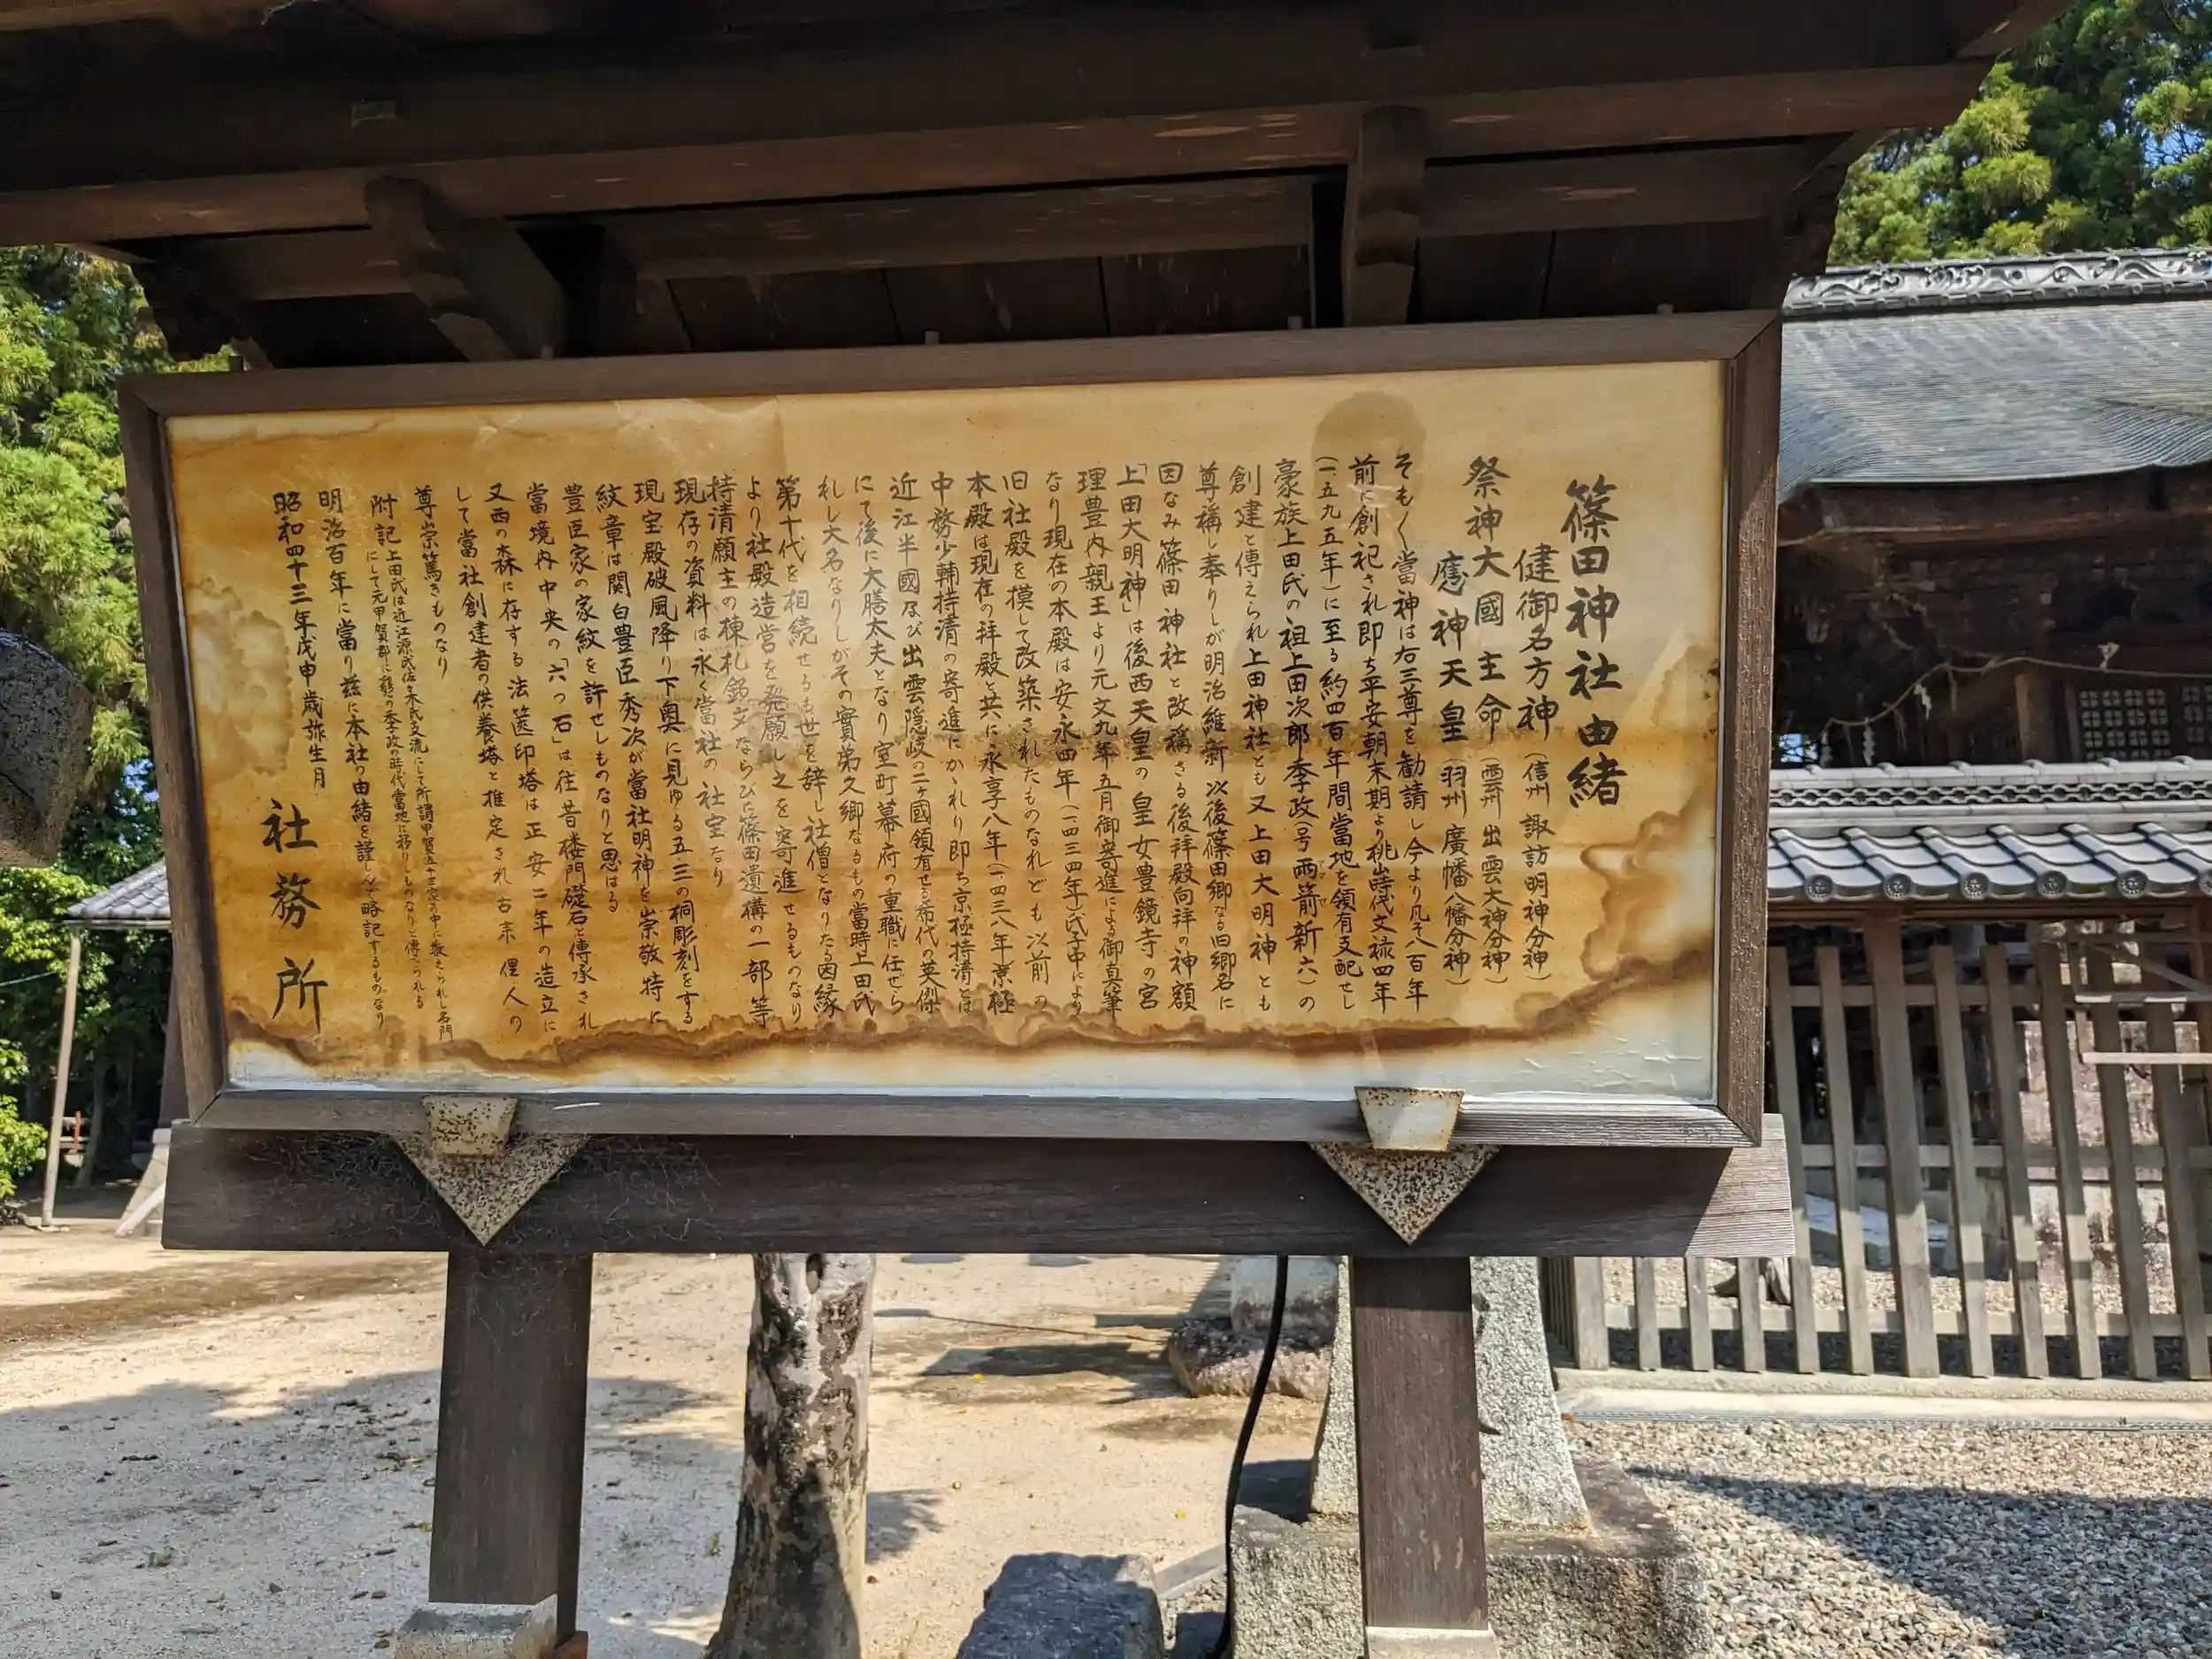 篠田神社由緒
健御名方神（信州 諏訪明神分神）
祭神大國主命（雲州 出雲大神分神）
應神天皇（羽州 廣幡八幡分神）
そもく當神は右三尊を勧請し今より凡そ八百年
前に創祀され即ち平安朝末期より桃山時代文禄四年
（一五九五年）に至る約四百年間當地を領有支配せし
豪族上田氏の祖上田次郎季政（号 両箭新六）の
創建と傳えられ上田神社とも又上田大明神とも
尊稱し奉りしが明治維新以後篠田郷なる旧郷名に
因なみ篠田神社と改稱さる後拝殿向拝の神額
「上田大明神」は後西天皇の皇女豊鏡寺の宮
理豊内親王より元文九年五月御寄進による御真筆
なり現在の本殿は安永四年（一四三四年）氏子中により
旧社殿を摸して改築されたものなれども以前の
本殿は現在の拝殿と共に永享八年（一四三八年）京極
中務少輔持清の寄進にかゝれり即ち京極持清とは
近江半國及び出雲隠岐の二ヶ國領有せる希代の英傑
にて後に大膳太夫となり室町幕府の重職に任ぜら
れし大名なりしがその實弟久郷なるもの當時上田氏
第十代を相続せるも世を辞し社僧となりたる因縁
より社殿造営を発願し之を寄進せるものなり
持清願主の棟札銘文ならびに篠田遺構の一部等
現存の資料は永く當社の社宝なり
現宝殿破風降り下奥に見ゆる五三の桐彫刻をする
紋章は関白豊臣秀次が當社明神を崇敬特に
豊臣家の家紋を許せしものなりと思はる
當境内中央の「六つ石」は往昔楼門礎石と傳承され
又西の森に存する法篋印塔は正安二年の造立に
して當社創建者の供養塔と推定され古来俚人の
尊崇篤きものなり
附記 上田氏は近江源氏佐々木氏支流にして所謂甲賀五十三家の中に数えられし名門
にして元甲賀郡に據り季政の時代當地に移りしものなりと傳へられる
明治百年に當り茲に本社の由緒を謹しんで略記するものなり
昭和四十三年戊申歳弥生月
社務所